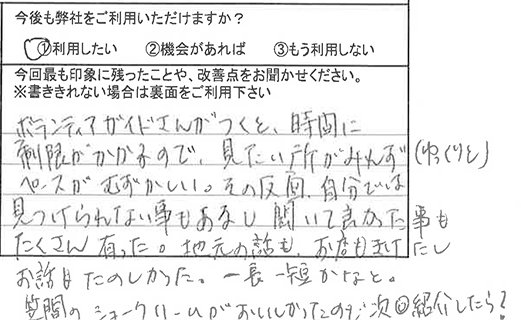 今後も弊社をご利用いただけますか?
①利用したい ②機会があれば ③もう利用しない
今回最も印象に残ったことや、改善点をお聞かせください。
※書ききれない場合は裏面をご利用下さい
ボランティアガイドさんがつくと、時間に
制限がかかるので、見たい所がみれず(ゆっくりと)
ペースがむずかしい。その反面、自分では
見つけられない事もあるし聞いて良かった事も
たくさん有った。地元の話も、お店もきけたし
お話もたのしかった。一長一短かなと。
笠間のシュークリームがおいしかったので次回紹介したら?